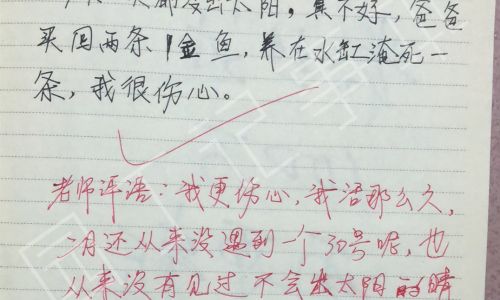 都没出太阳,真不好,爸爸
买回两条金鱼,养在水缸淹死一
条,我很伤心。
老师评语:我更伤心,我活那么久,
二月还从来没遇到一个30号呢,也
从来没有见过不会出太阳的晴